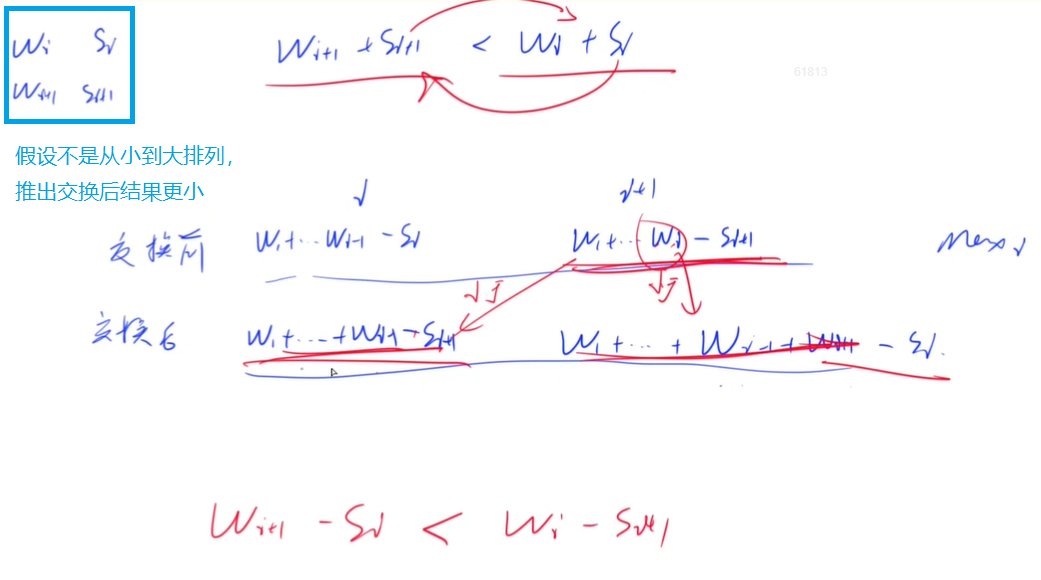 Wi Si
Wi+1 Si+1
Wi+1 + Si+1 < Wi + Si
61813
假设不是从小到大排列,
推出交换后结果更小
i i+1
交换前 W1+...Wi-1 - Si W1+...Wi - Si+1
交换后 W1+...+Wi-1 - Si+1 W1+...+Wi-1+Wi+1 - Si.
Wi+1 - Si < Wi - Si+1